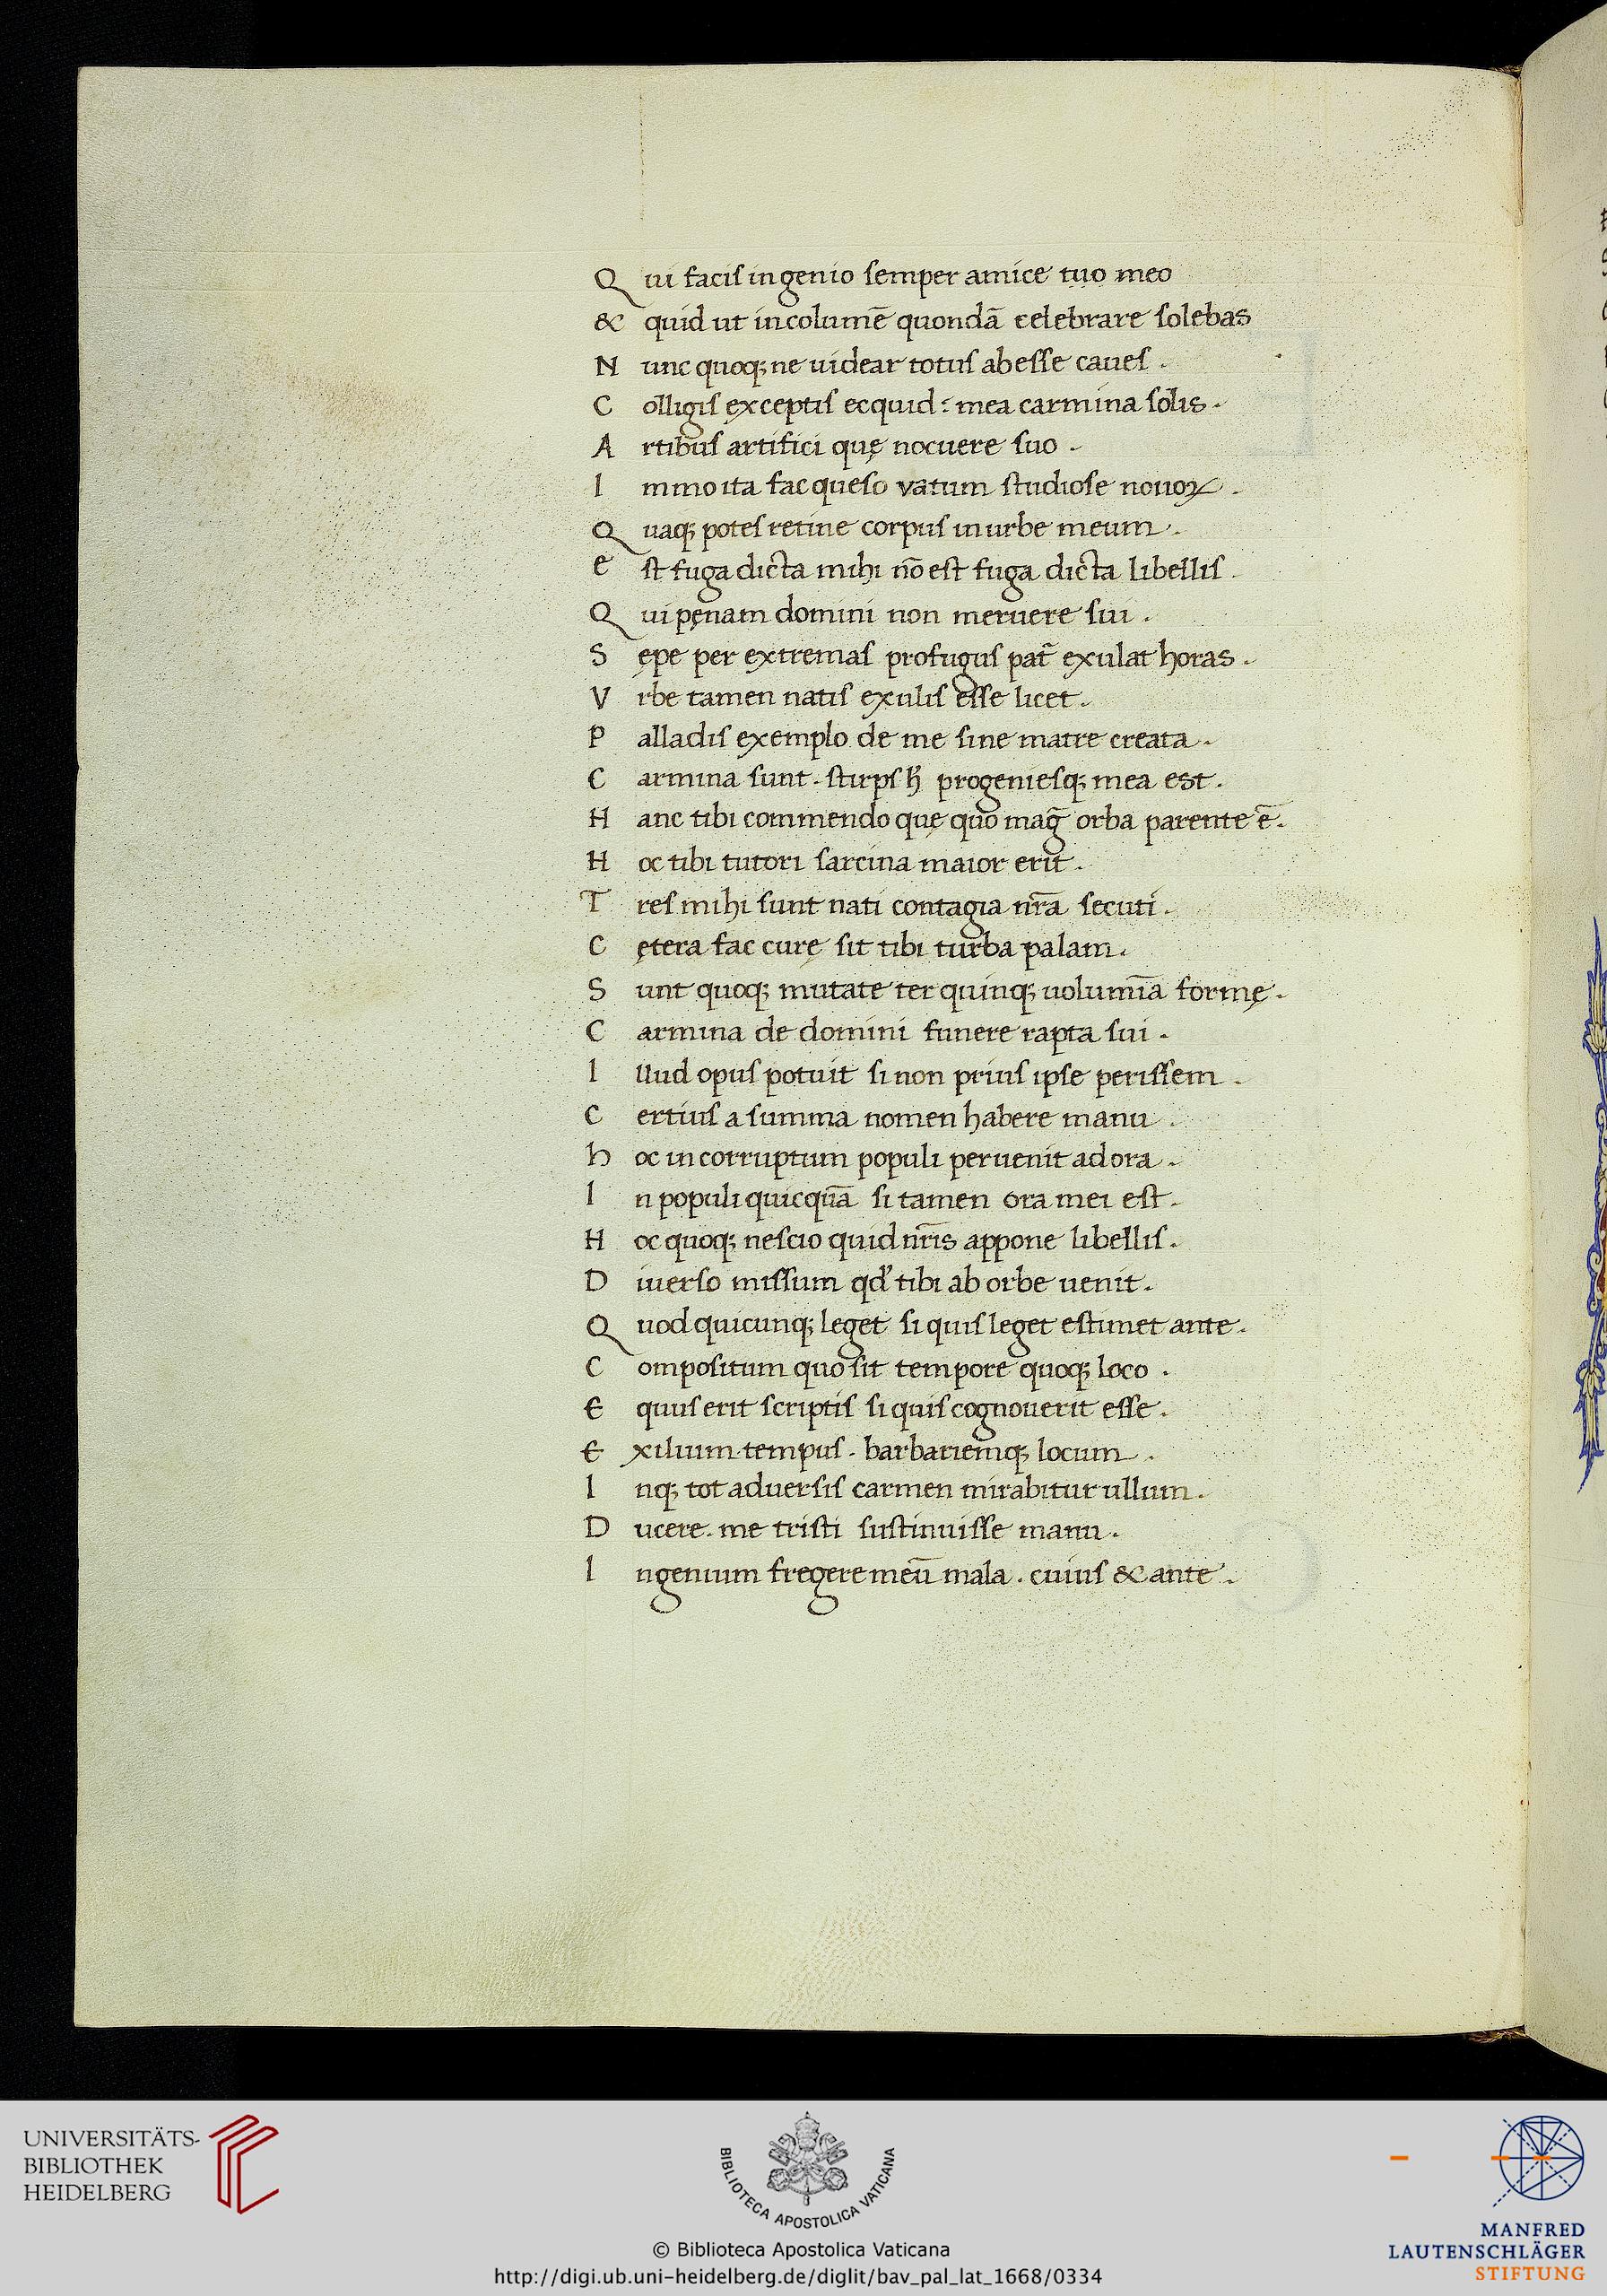 Qui facis ingenio semper amice tuo meo
& quid ut incolumē quondā celebrare solebas
Nunc quoq; ne uidear totus abesse caues .
Colligis exceptis ecquid : mea carmina solis .
Artibus artifici quę nocuere suo .
Immo ita fac queso vatum studiose nouoꝝ .
Quaq; potes retine corpus in urbe meum .
est fuga dicta mihi nō est fuga dicta libellis .
Qui pęnam domini non meruere sui .
Sępe per extremas profugus pat̄ exulat horas .
Vrbe tamen natis exulis esse licet .
Palladis exemplo de me sine matre creata .
Carmina sunt . stirps h̄ progeniesq; mea est .
Hanc tibi commendo quę quo maḡ orba parente ē .
Hoc tibi tutori sarcina maior erit .
Tres mihi sunt nati contagia nr̄a secuti .
Cętera fac curę sit tibi turba palam .
Sunt quoq; mutate ter quinq; uolumīa formę .
Carmina de domini funere rapta sui .
Illud opus potuit si non prius ipse perissem .
Certius a summa nomen habere manu .
hoc incorruptum populi peruenit ad ora .
In populi quicquā si tamen ora mei est .
Hoc quoq; nescio quid nr̄is appone libellis .
Diuerso missum qd' tibi ab orbe uenit .
Quod quicunq; leget si quis leget estimet ante .
Compositum quo sit tempore quoq; loco .
Equus erit scriptis si quis cognouerit esse .
Exilium tempus . barbariemq; locum .
Inq; tot aduersis carmen mirabitur ullum .
Ducere . me tristi sustinuisse manu .
Ingenium fregere meū mala . cuius & ante .
UNIVERSITÄTS-
BIBLIOTHEK
HEIDELBERG
BIBLIOTECA APOSTOLICA VATICANA
© Biblioteca Apostolica Vaticana
http://digi.ub.uni-heidelberg.de/diglit/bav_pal_lat_1668/0334
MANFRED
LAUTENSCHLÄGER
STIFTUNG